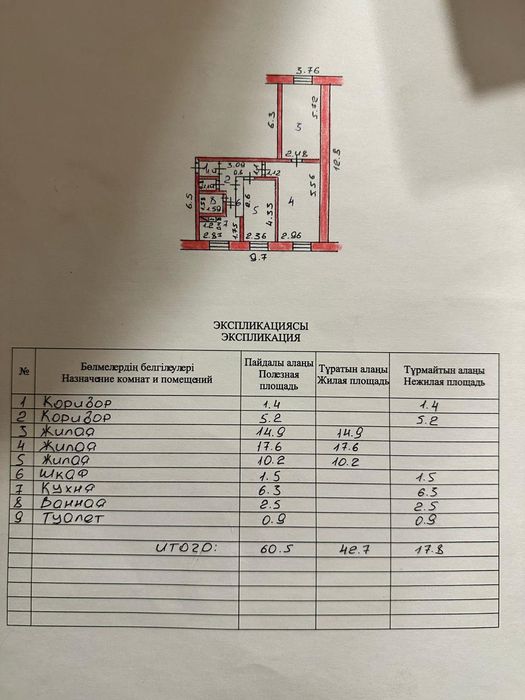 3.76
6.3
5.72
3
12.8
2.48
3.09
5.56
6.5
2
4
5
4.33
2.36
2.96
9.7
ЭКСПЛИКАЦИЯСЫ
ЭКСПЛИКАЦИЯ
№ Бөлмелердің белгілеулері Пайдалы алаңы Тұратын алаңы Тұрмайтын алаңы
Назначение комнат и помещений Полезная площадь Жилая площадь Нежилая площадь
1 Коридор 1.4 1.4
2 Коридор 5.2 5.2
3 Жилая 14.9 14.9
4 Жилая 17.6 17.6
5 Жилая 10.2 10.2
6 Шкаф 1.5 1.5
7 Кухня 6.3 6.3
8 Ванная 2.5 2.5
9 Туалет 0.9 0.9
ИТОГО: 60.5 42.7 17.8